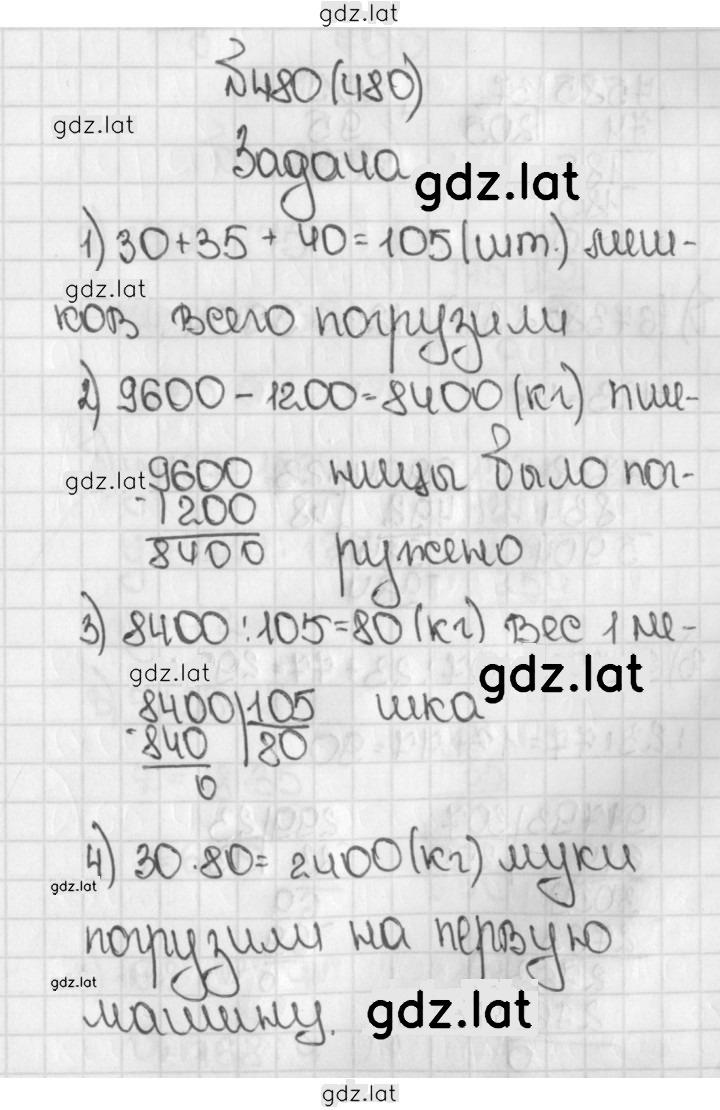 gdz.lat
№480(480)
gdz.lat
Задача
gdz.lat
1) 30+35+40=105(шт.) меш-
gdz.lat
ков всего погрузили
2) 9600-1200=8400(кг) пше-
gdz.lat
9600 ницы было пог-
-1200
8400 ружено
3) 8400:105=80(кг) вес 1 ме-
gdz.lat
gdz.lat
8400|105 шка
-840|80
0
4) 30·80=2400(кг) муки
gdz.lat
погрузили на первую
gdz.lat
машину.
gdz.lat
gdz.lat